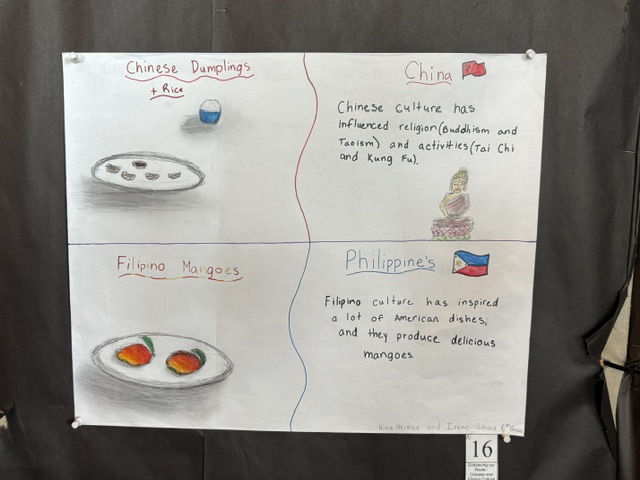 Chinese Dumplings
+ Rice
China
Chinese culture has
influenced religion(Buddhism and
Taoism) and activities(Tai Chi
and Kung Fu).
Filipino Mangoes
Philippine's
Filipino culture has inspired
a lot of American dishes,
and they produce delicious
mangoes
and Irene Zhao 6th
16
Embracing our
Chinese and